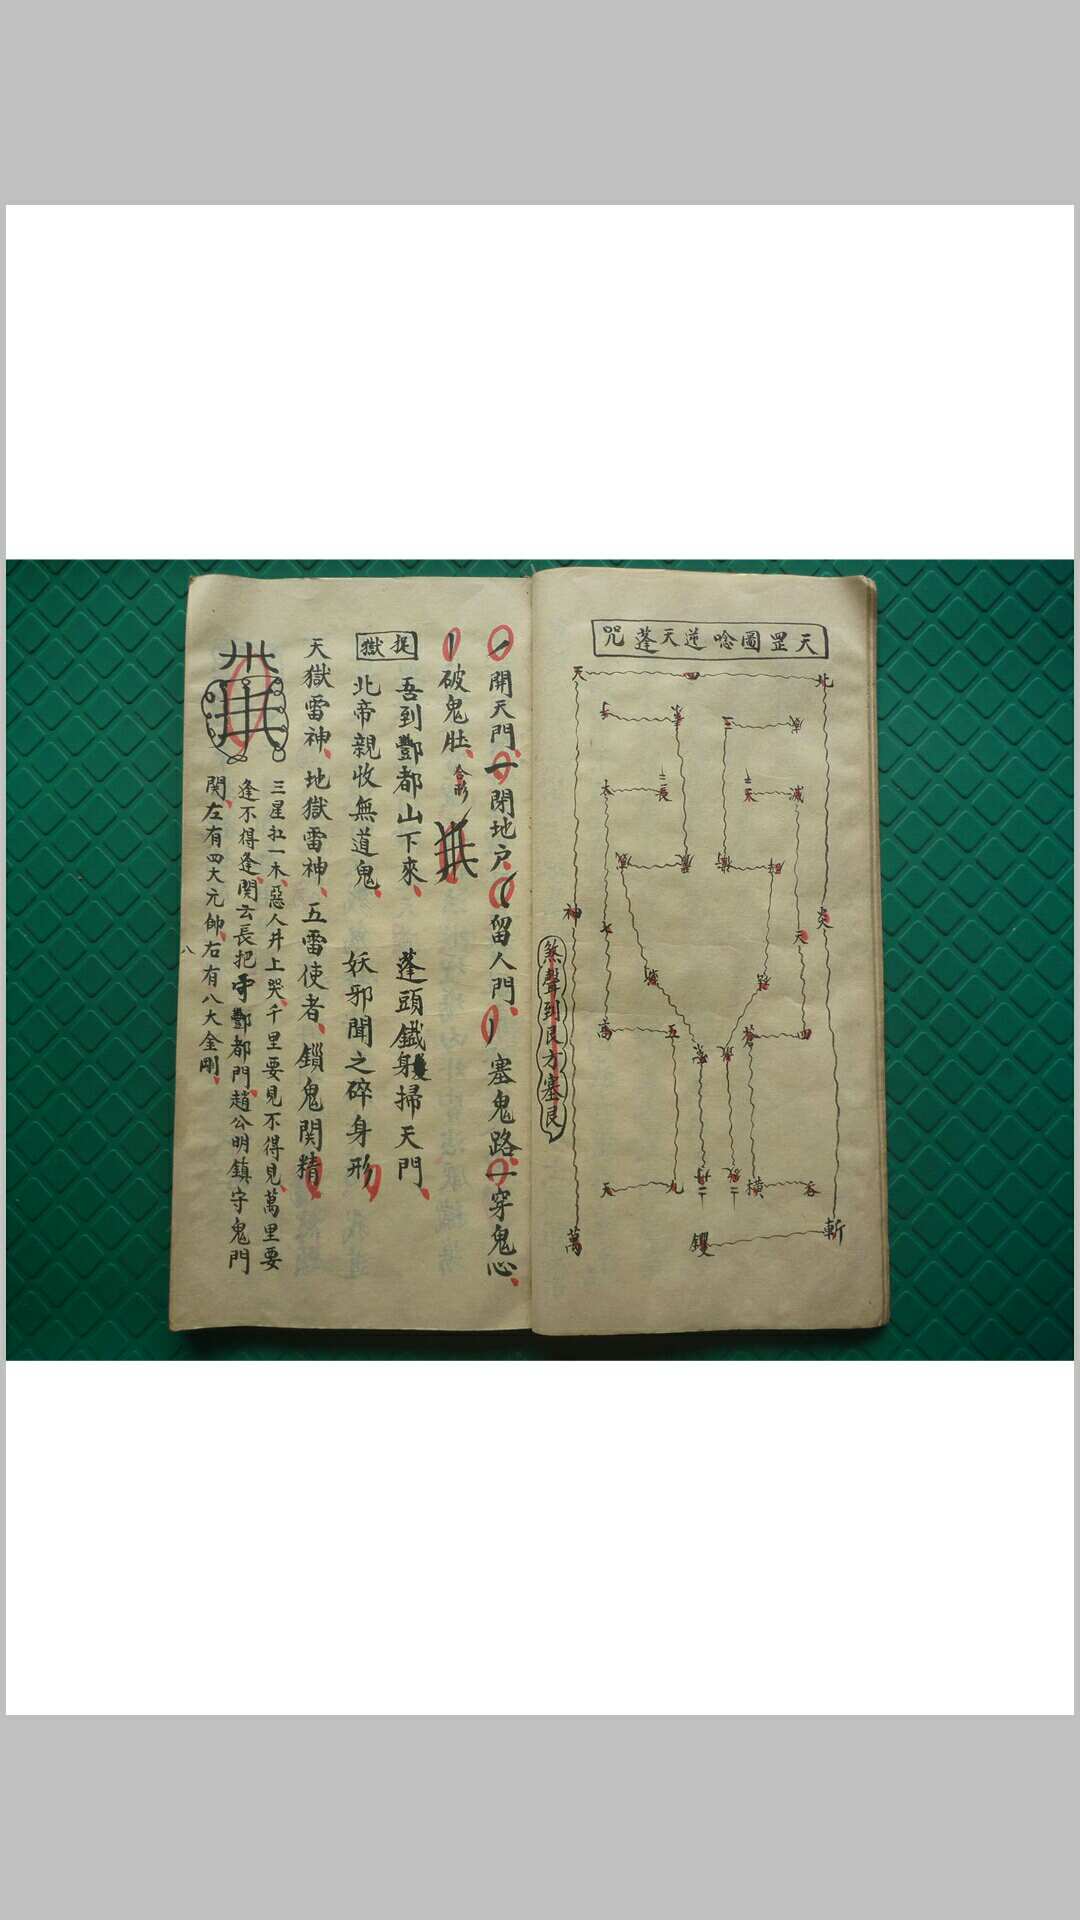 天罡圖唸逆天蓬咒
北
四
天
炎
神
斬
钁
萬
三
滅
天
長
天
四
蒼
五
萬
七
橫
吞
九
天
煞聲到艮方塞艮
開天門
閉地户
留人門
塞鬼路
穿鬼心
破鬼肚
合形
吾到酆都山下來
蓬頭鐵身掃天門
捉獄
北帝親收無道鬼
妖邪聞之碎身形
天獄雷神、地獄雷神、五雷使者、鎖鬼関精
三星扛一木、惡人井上哭、千里要見不得見、萬里要
逢不得逢、関云長把守酆都門、趙公明鎮守鬼門
関、左有四大元帥、右有八大金剛、
八